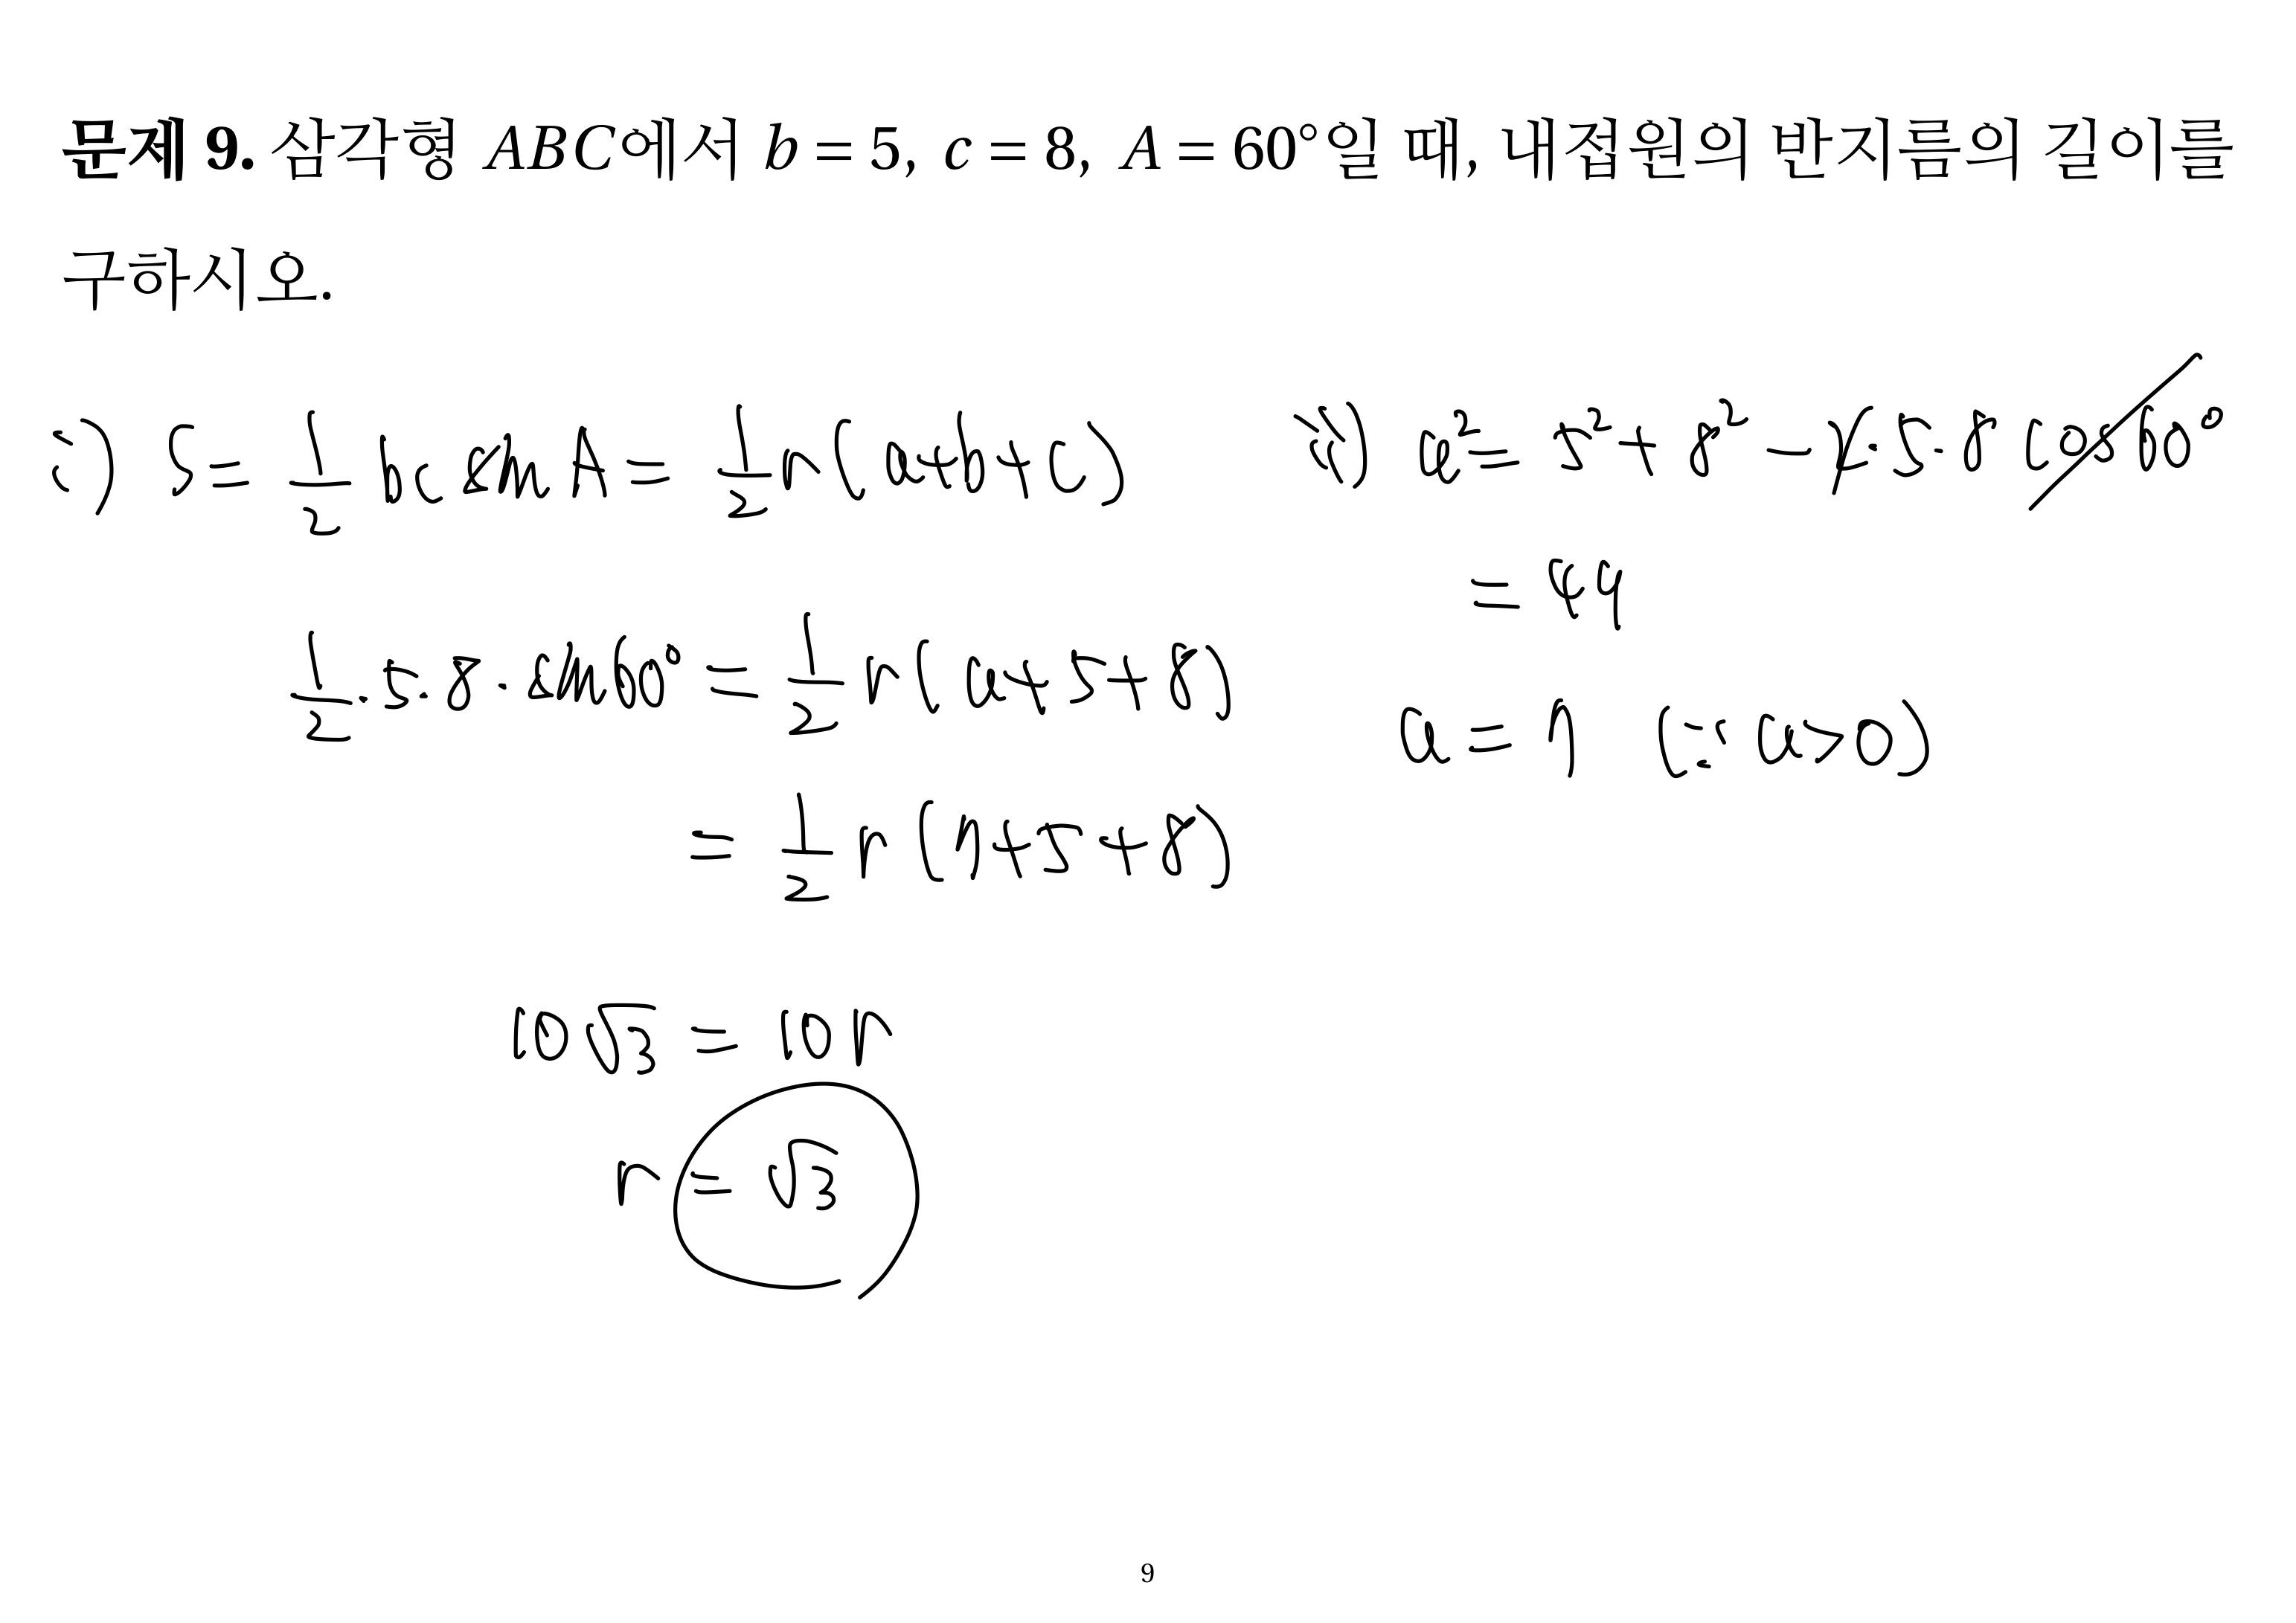 문제 9. 삼각형 ABC에서 b = 5, c = 8, A = 60°일 때, 내접원의 반지름의 길이를
구하시오.
i) S = 1/2 bc sin A = 1/2 r(a+b+c)
1/2 · 5 · 8 · sin 60° = 1/2 r(a+5+8)
= 1/2 r(7+5+8)
10√3 = 10r
r = √3
ii) a² = 5² + 8² - 2·5·8 cos 60°
= 49
a = 7 (∵ a>0)
9